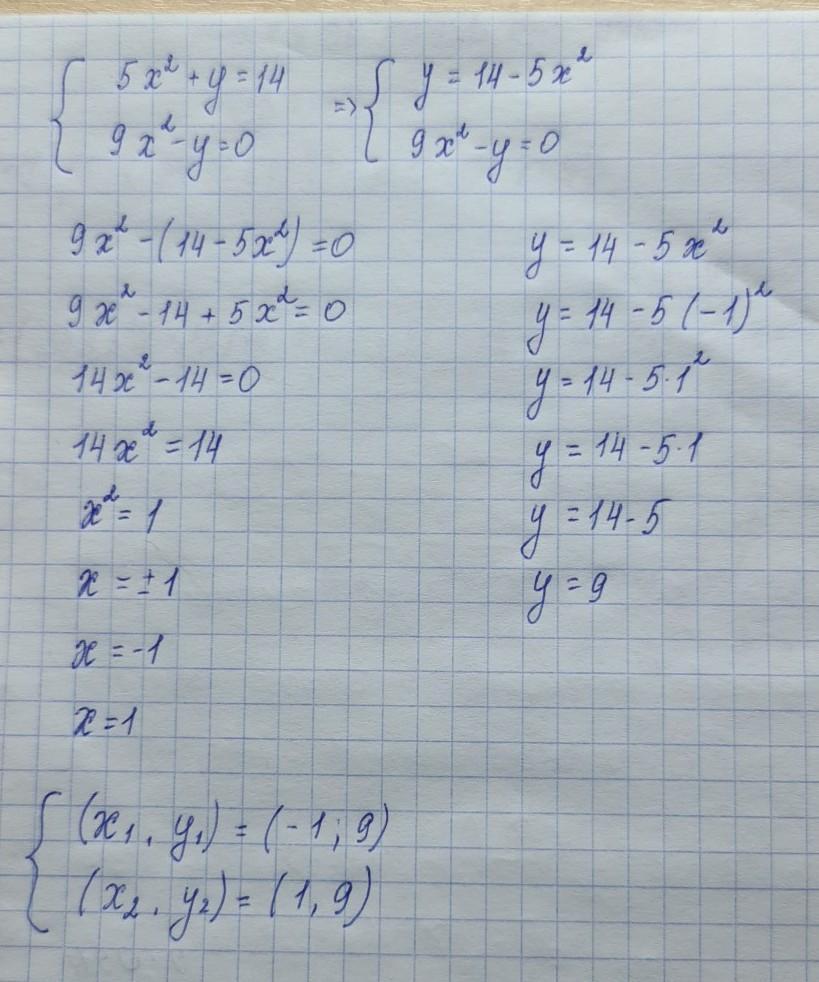 5x² + y = 14 => y = 14 - 5x²
9x² - y = 0 9x² - y = 0
9x² - (14 - 5x²) = 0
9x² - 14 + 5x² = 0
14x² - 14 = 0
14x² = 14
x² = 1
x = ±1
x = -1
x = 1
y = 14 - 5x²
y = 14 - 5(-1)²
y = 14 - 5·1²
y = 14 - 5·1
y = 14 - 5
y = 9
(x₁, y₁) = (-1; 9)
(x₂, y₂) = (1, 9)